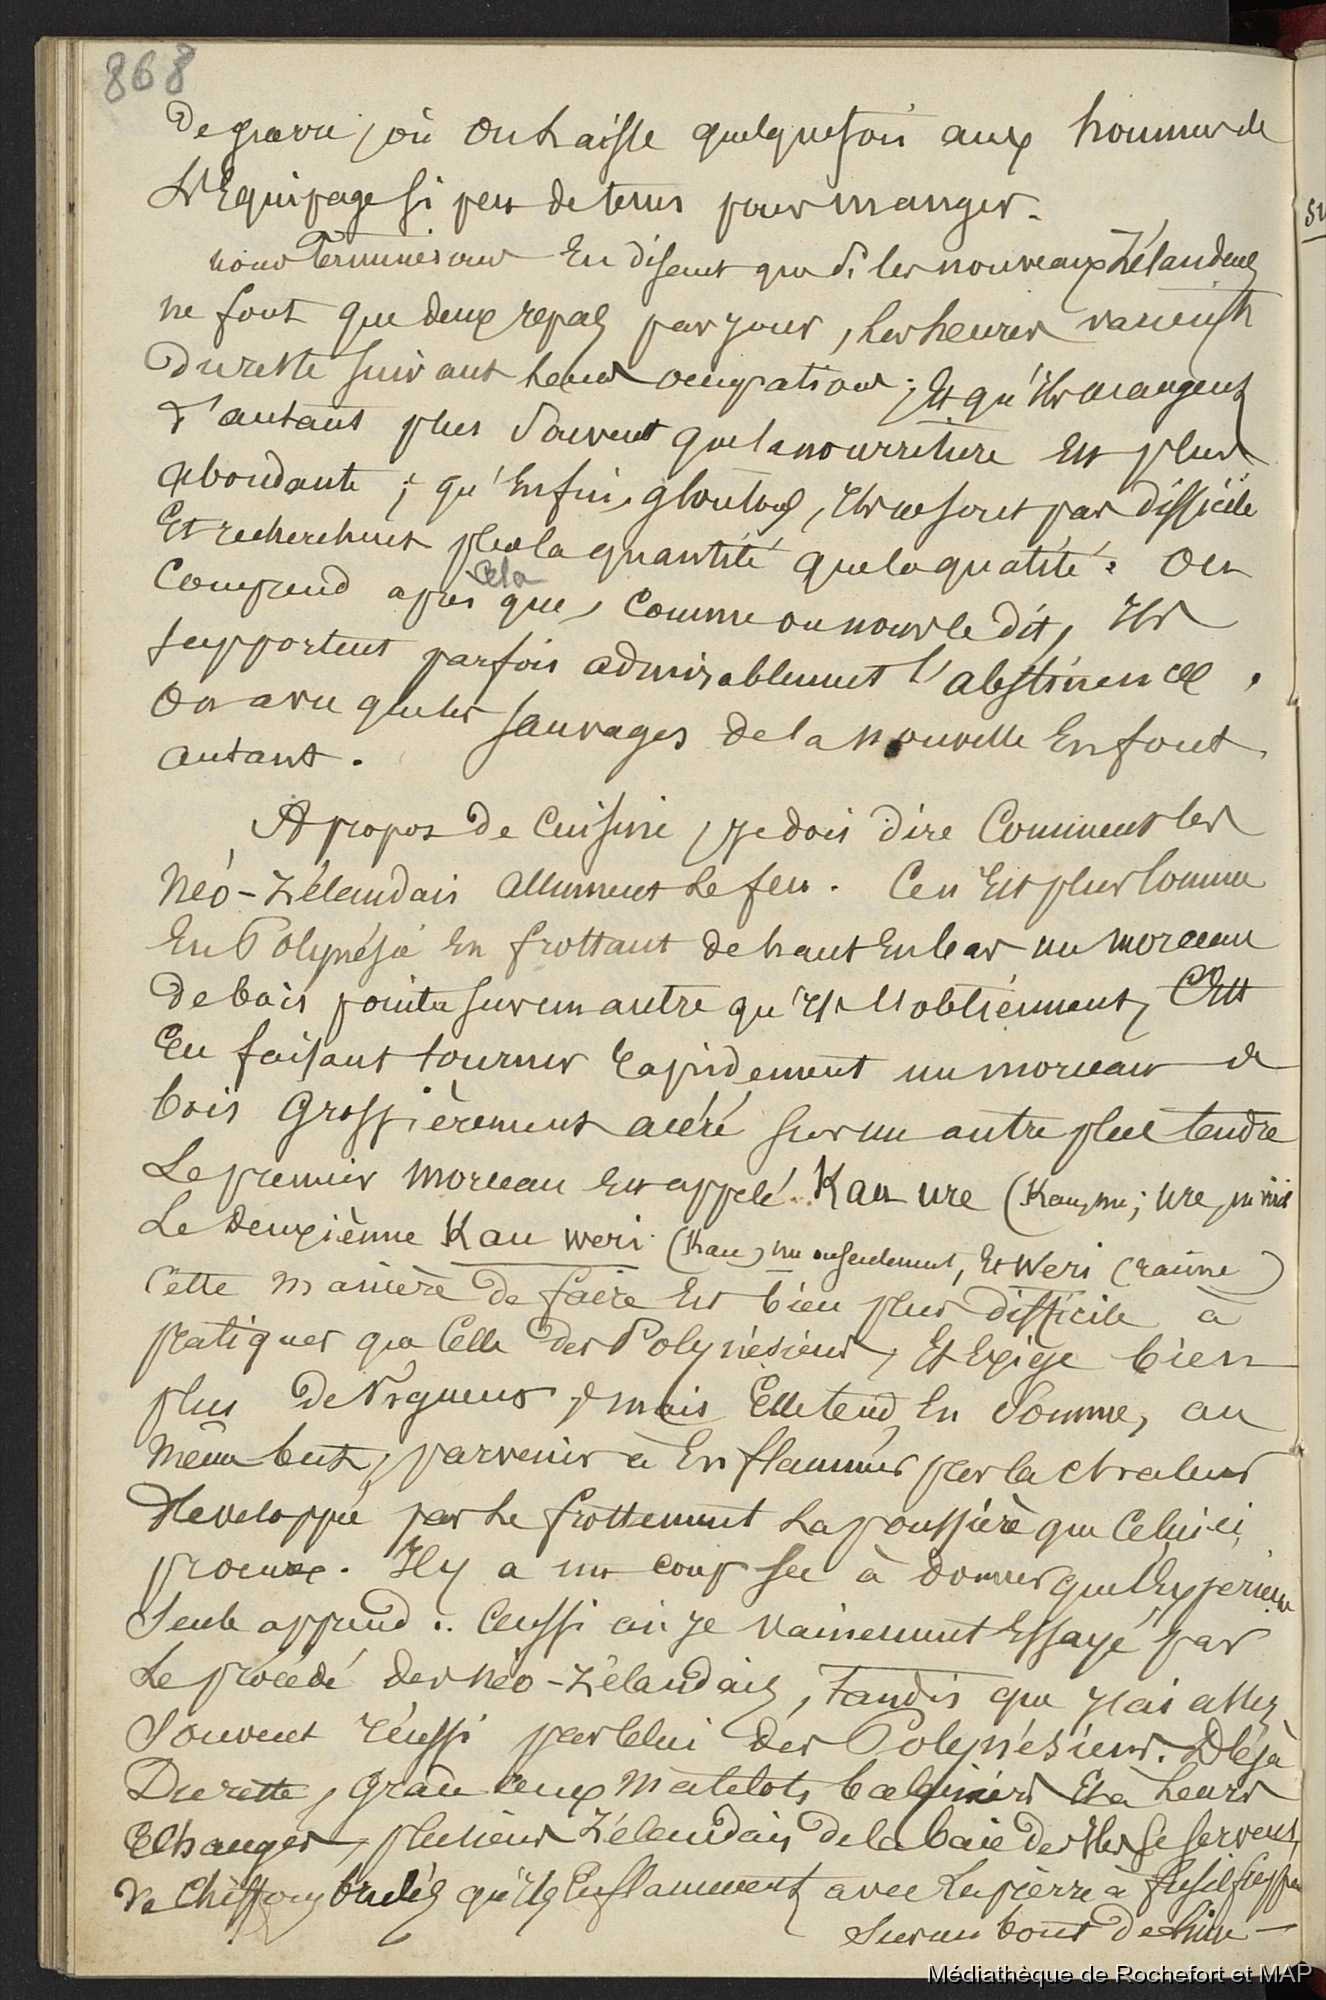 868
De guerre, où on laisse quelquefois aux hommes de
L'Equipage si peu de tems pour manger.
nous Terminerons En disant que si les nouveaux Zélandais
ne font que deux repas par jour, les heures varient
Du reste suivant leurs occupations; Et qu'ils mangent
d'autant plus souvent que la nourriture Est plus
abondante; qu'Enfin, gloutons, ils ne sont pas difficile
Et recherchent plus la quantité que la qualité. On
Comprend après cela que, comme on nous le dit, ils
supportent parfois admirablement l'abstinence.
On a vu que les sauvages de la nouvelle En font
autant.
A propos de Cuisine, je dois dire Comment les
Néo-Zélandais allument le feu. Ce n'Est plus Comme
En Polynésie En frottant de haut En bas un morceau
de bois pointu sur un autre qu'ils l'obtiennent, C'Est
En faisant tourner rapidement un morceau de
bois grossièrement acéré sur un autre plus tendre
Le premier morceau Est appelé Kau ure (Kau, nu; ure,
Le deuxième Kau weri (Kau, nu ou seulement, Et weri (racine)
Cette manière de faire Est bien plus difficile à
pratiquer que Celle des Polynésiens, Et Exige bien
plus de vigueur; mais Elle tend, En somme, au
même but, parvenir à Enflammer par la chaleur
Développée par le frottement la poussière que Celui-ci
procure. Il y a un coup sec à donner que l'Expérience
seule apprend. aussi ai-je vainement Essayé par
Le procédé des Néo-Zélandais, Tandis que j'ai assez
souvent réussi par Celui des Polynésiens. Déjà
Du reste, grâce aux matelots baleiniers Et à leurs
Echanges, plusieurs Zélandais de la baie des Iles se servent,
de chiffons brulés qu'ils Enflamment avec la pierre à fusil frappée
sur un bout de lime
Médiathèque de Rochefort et MAP